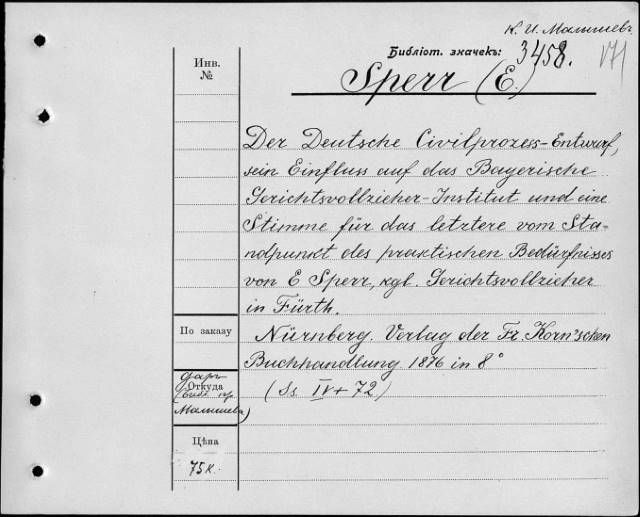 К. И. Малышевъ
Библіот. значекъ: 3458. VI
Инв.
№
Sperr (E.)
Der Deutsche Civilprozess-Entwurf,
sein Einfluss auf das Bayerische
Gerichtsvollzieher-Institut und eine
Stimme für das letztere vom Sta-
ndpunkt des praktischen Bedürfnisses
von E Sperr, kgl. Gerichtsvollzieher
in Fürth.
По заказу
Nürnberg. Verlag der Fr. Korn'schen
Buchhandlung 1876 in 8°
даръ
Откуда
Малышева)
(Ss. IV + 72)
Цѣна
75 к.